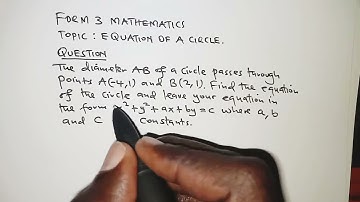 FORM 3 MATHEMATICS
TOPIC : EQUATION OF A CIRCLE.
QUESTION
The diameter AB of a circle passes through
points A(-4,1) and B(2,1). Find the equation
of the circle and leave your equation in
the form x²+y²+ax+by=c where a, b
and c constants.